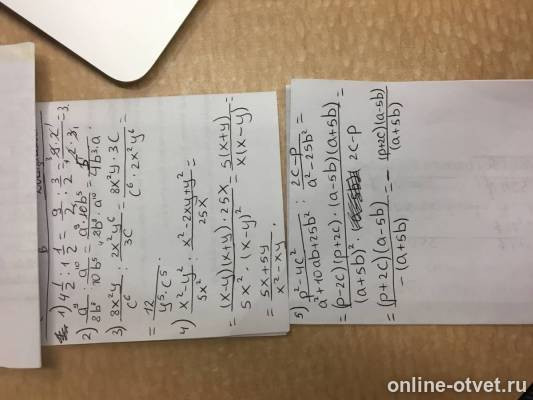 1) 4 1/2 : 1 1/2 = 9/2 : 3/2 = 9·2/2·3 = 3.
2) a⁹/8b⁸ : a¹⁰/10b⁵ = a⁹·10b⁵/8b⁸·a¹⁰ = 5/4b³a.
3) 8x²y/c⁶ : 2x²y⁶/3c = 8x²y·3c/c⁶·2x²y⁶ =
= 12/y⁵·c⁵.
4) x²-y²/5x² : x²-2xy+y²/25x =
= (x-y)(x+y)·25x/5x²(x-y)² = 5(x+y)/x(x-y) =
= 5x+5y/x²-xy.
5) p²-4c²/a²+10ab+25b² : 2c-p/a²-25b² =
= (p-2c)(p+2c)·(a-5b)(a+5b)/(a+5b)²· 2c-p =
= (p+2c)(a-5b)/-(a+5b) = - (p+2c)(a-5b)/(a+5b)
online-otvet.ru